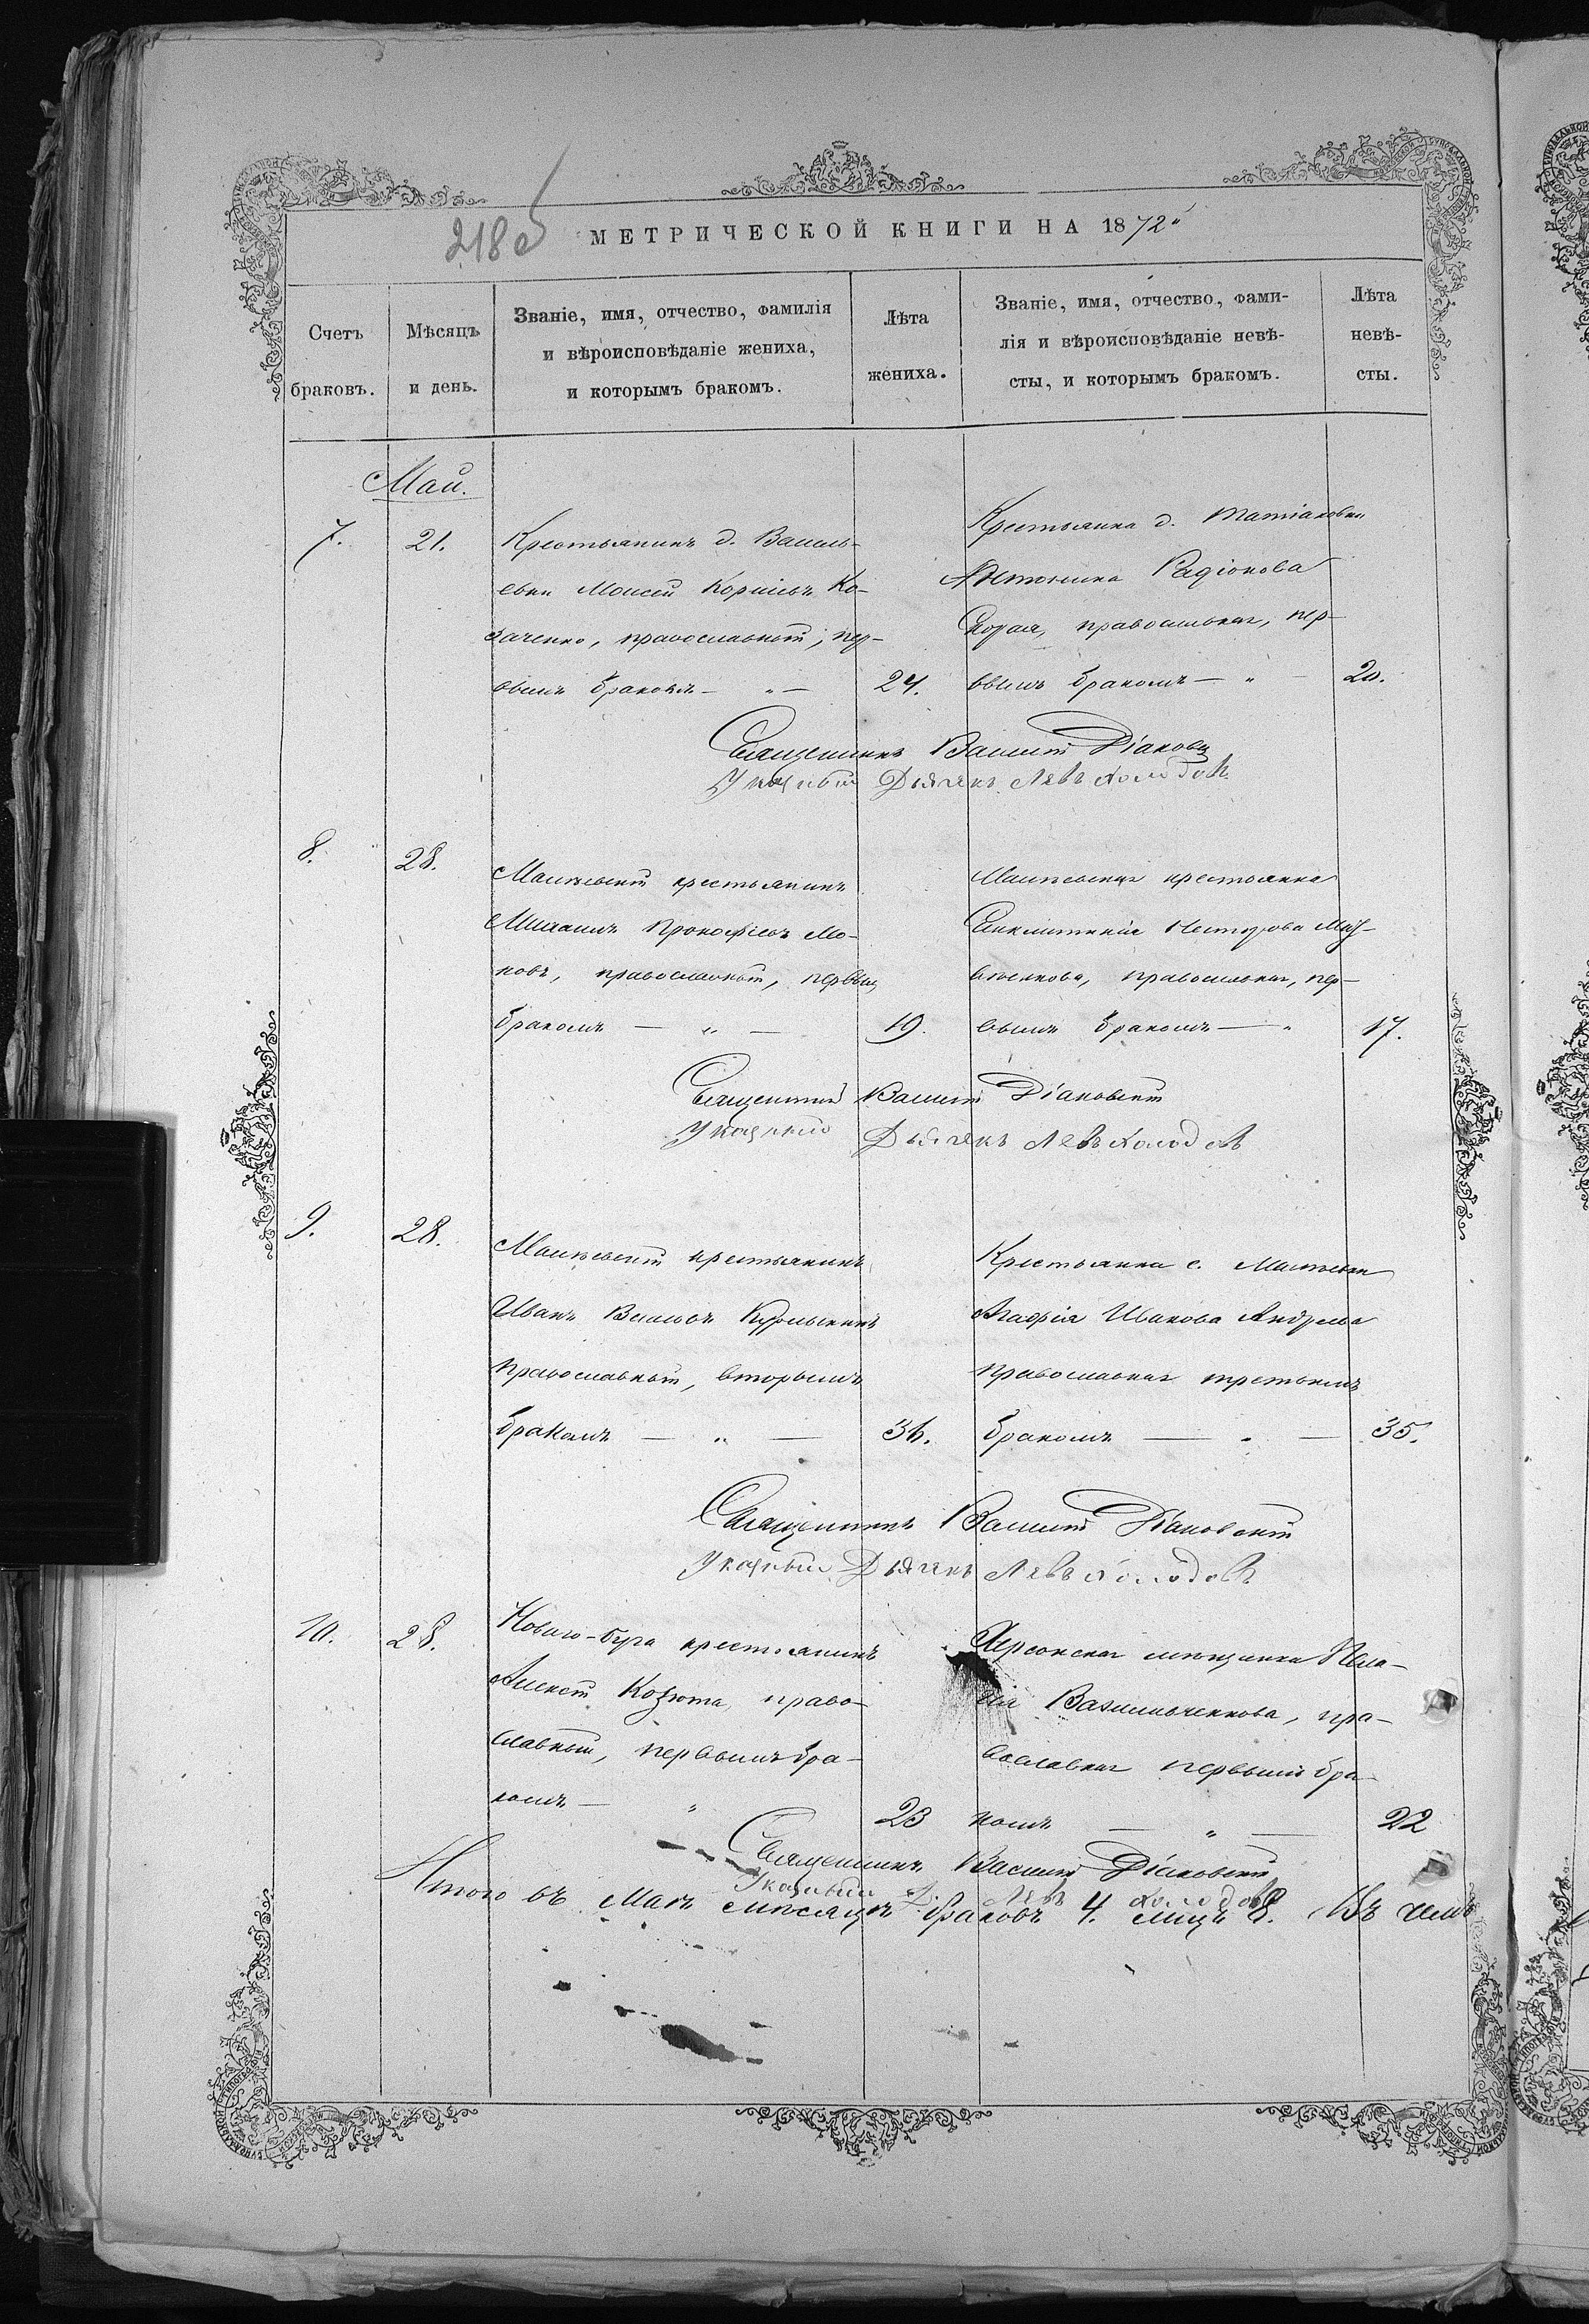 218об
МЕТРИЧЕСКОЙ КНИГИ НА 1872й
Счетъ браковъ.
Мѣсяцъ и день.
Званіе, имя, отчество, фамилія
и вѣроисповѣданіе жениха,
и которымъ бракомъ.
Лѣта жениха.
Званіе, имя, отчество, фами-
лія и вѣроисповѣданіе невѣ-
сты, и которымъ бракомъ.
Лѣта невѣ-
сты.
Май.
7.
21.
Крестьянинъ д. Василь-
евки Моисей Корніевъ Ко-
заченко, православный, пер-
вымъ бракомъ — „ —
24.
Крестьянка д.
Антонина Радіонова
православная, пер-
вымъ бракомъ — „
20.
Священникъ Василій Діаковск
Указный Дьячекъ Левъ Холодовъ
8.
28.
крестьянинъ
Михаилъ Прокофіевъ Мо-
ковъ, православный, первым
бракомъ — „ —
19.
крестьянка
Синклитикія Несторова
православная, пер-
вымъ бракомъ — „
17.
Священникъ Василій Діаковскій
Указный Дьячекъ Левъ Холодовъ
9.
28.
крестьянинъ
Иванъ
православный, вторымъ
бракомъ — „ —
36.
Крестьянка с.
Агафія Иванова
православная третьимъ
бракомъ — „ —
35.
Священникъ Василій Діаковскій
Указный Дьячекъ Левъ Холодовъ
10.
28.
Новаго-Буга крестьянинъ
Алексѣй Козюта, право-
славный, первымъ бра-
комъ — „
23
Херсонская мѣщанка Пела-
гія Васильченкова, пра-
вославная первымъ бра-
комъ — „ —
22
Священникъ Василій Діаковскій
Указный Д. Левъ Холодовъ
Итого въ Маѣ мѣсяцѣ браковъ 4. лицъ 8. Въ чемъ